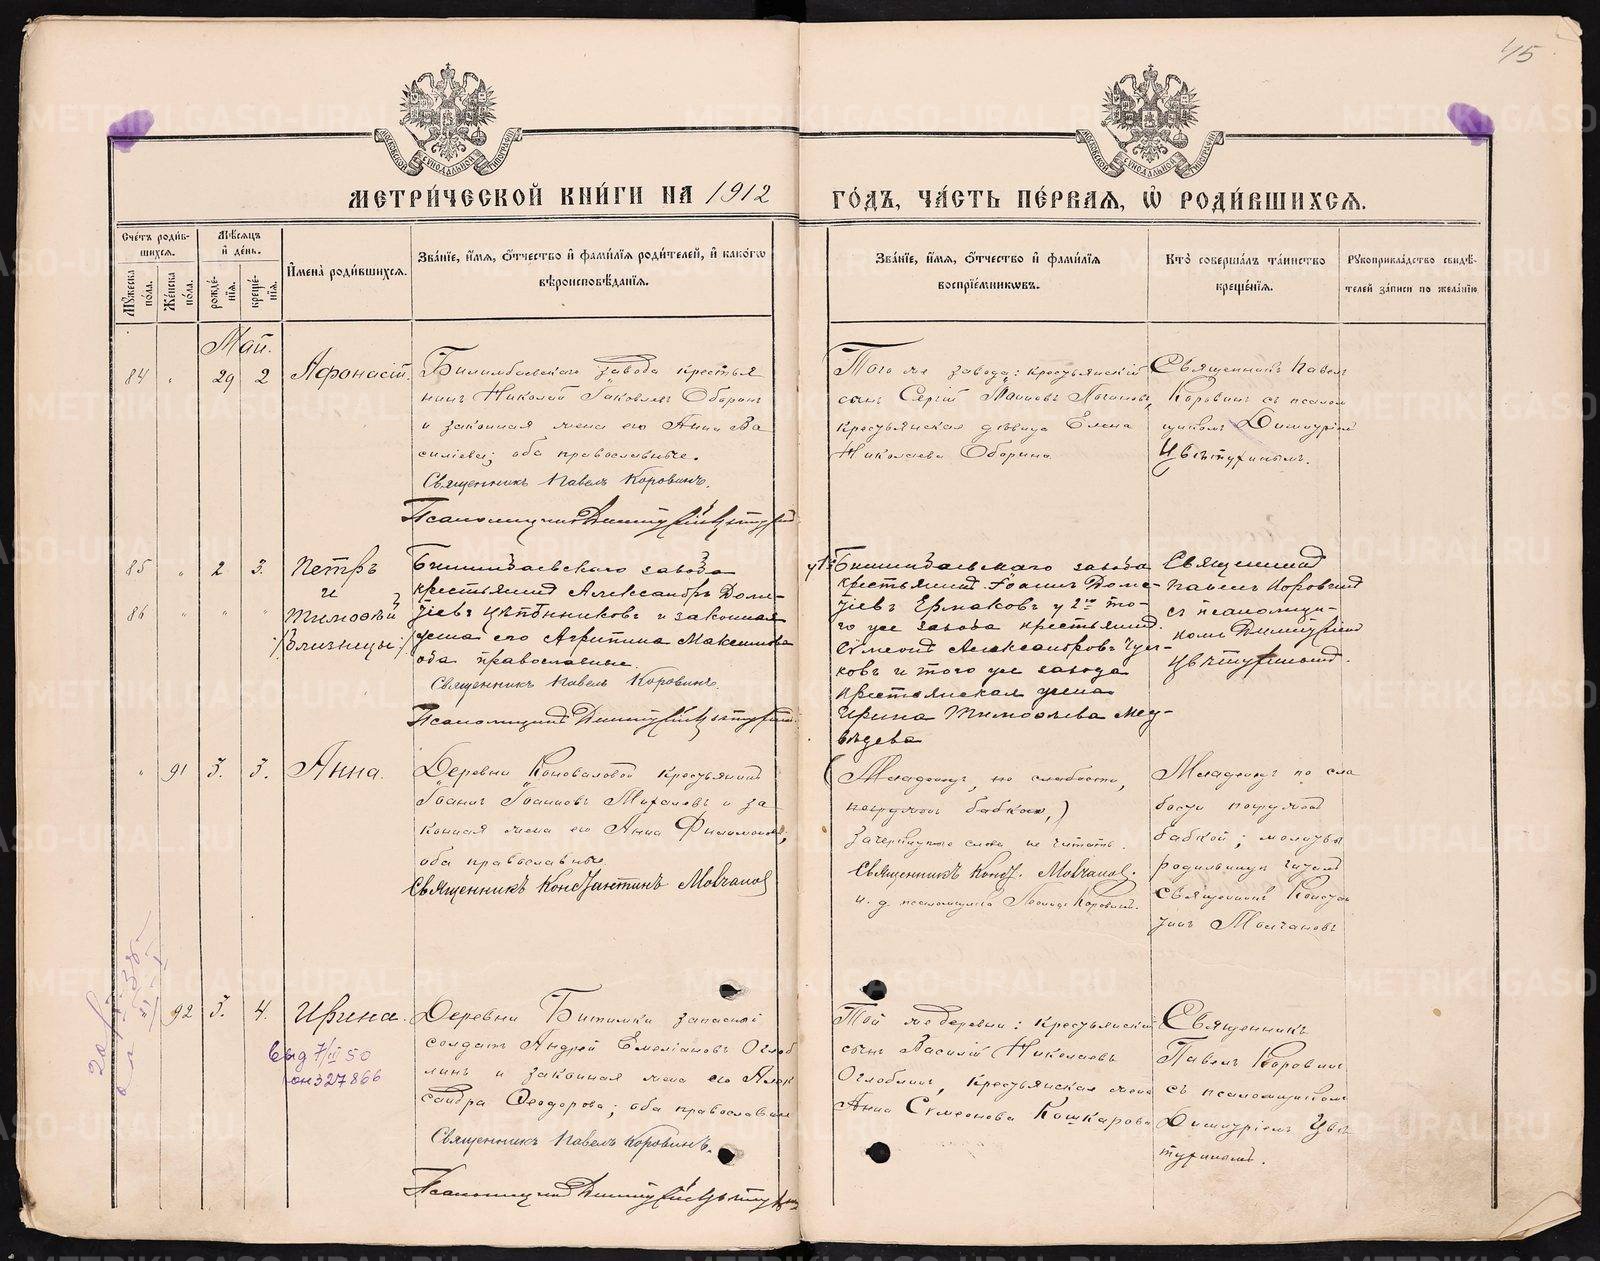 45
МОСКОВСКОЙ СѴНОДАЛЬНОЙ ТИПОГРАФІИ
МОСКОВСКОЙ СѴНОДАЛЬНОЙ ТИПОГРАФІИ
МЕТРИ́ЧЕСКОЙ КНИ́ГИ НА 1912
ГО́ДЪ, ЧА́СТЬ ПЕ́РВАЯ, Ѡ҆ РОДИ́ВШИХСЯ.
Сче́тъ роди́в-
шихся.
Мꙋжеска по́ла.
Же́нска по́ла.
Мѣ́сяцъ
и҆ де́нь.
рожде́-
нїя.
креще́-
нїя.
И҆мена̀ роди́вшихся.
Зва́нїе, и҆́мя, ѻ҆́тчество и҆ фами́лїя роди́телей, и҆ како́гѡ
вѣроисповѣ́данїя.
Зва́нїе, и҆́мя, ѻ҆́тчество и҆ фами́лїя
воспрїе́мникѡвъ.
Кто̀ соверша́лъ та́инство
креще́нїя.
Рꙋкоприкла́дство свидѣ́-
телей за́писи по жела́нїю.
Май.
84 " 29 2 Афонасій.
Билимбаевскаго завода крестья
нинъ Николай Іаковлевъ Оборинъ
и законная жена его Анна Ва
силіева; оба православные.
Священникъ Павелъ Коровинъ.
Псаломщикъ Димитрій Цвѣтухинъ
Того же завода: крестьянскій
сынъ Сергій
крестьянская дѣвица Елена
Николаева Оборина
Священникъ Павелъ
Коровинъ съ псалом
щикомъ Димитріемъ
Цвѣтухинымъ.
85 " 2 3. Петръ
и
86 " " " Тимоѳей
/близнецы/
Билимбаевскаго завода
крестьянинъ Александръ Доме-
тіевъ и законная
жена его Агрипина Максимова
оба православные.
Священникъ Павелъ Коровинъ.
Псаломщикъ Димитрій Цвѣтухинъ
Билимбаевскаго завода
крестьянинъ Іоаннъ Доме-
тіевъ Ермаковъ у 2го то-
го же завода крестьянинъ
Сѵмеонъ Александровъ
ковъ и того же завода
крестьянская жена
Ирина Тимоѳеева Мед-
вѣдева
Священникъ
Павелъ Коровинъ
съ псаломщи-
комъ Димитріемъ
Цвѣтухинымъ.
" 91 3. 3. Анна.
Деревни Коноваловой крестьянинъ
Іоаннъ Іоанновъ и за
конная жена его Анна Филимонова;
оба православные
Священникъ Константинъ Молчановъ
(Младенецъ, по слабости,
погружонъ бабкою,)
Зачеркнутые слова не читать.
Священникъ Конст. Молчановъ.
и. д. псаломщика Коровинъ.
Младенецъ по сла
бости погружонъ
бабкой; молитвы
родильницѣ читалъ
Священникъ Констан
тинъ Молчановъ
92 3. 4. Ирина.
Выд 7/III 50
юн 327866
Деревни Битимки запасной
солдатъ Андрей Емеліановъ Оглоб
линъ и законная жена его Алек
сандра Ѳеодорова; оба православные
Священникъ Павелъ Коровинъ.
Псаломщикъ Димитрій Цвѣтухинъ
Той же деревни: крестьянскій
сынъ Василій Николаевъ
Оглоблинъ, крестьянская жена
Анна Сѵмеонова Кошкарова
Священникъ
Павелъ Коровинъ
съ псаломщикомъ
Димитріемъ Цвѣ
тухинымъ.
METRIKI.GASO-URAL.RU